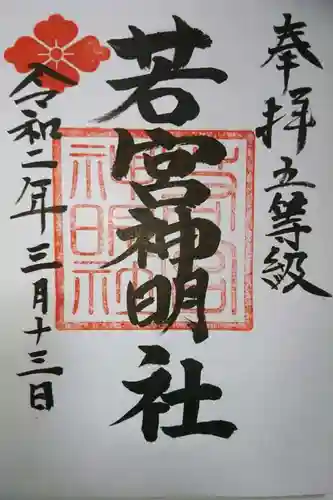 奉拝五等級
若宮神明社
令和二年三月十三日